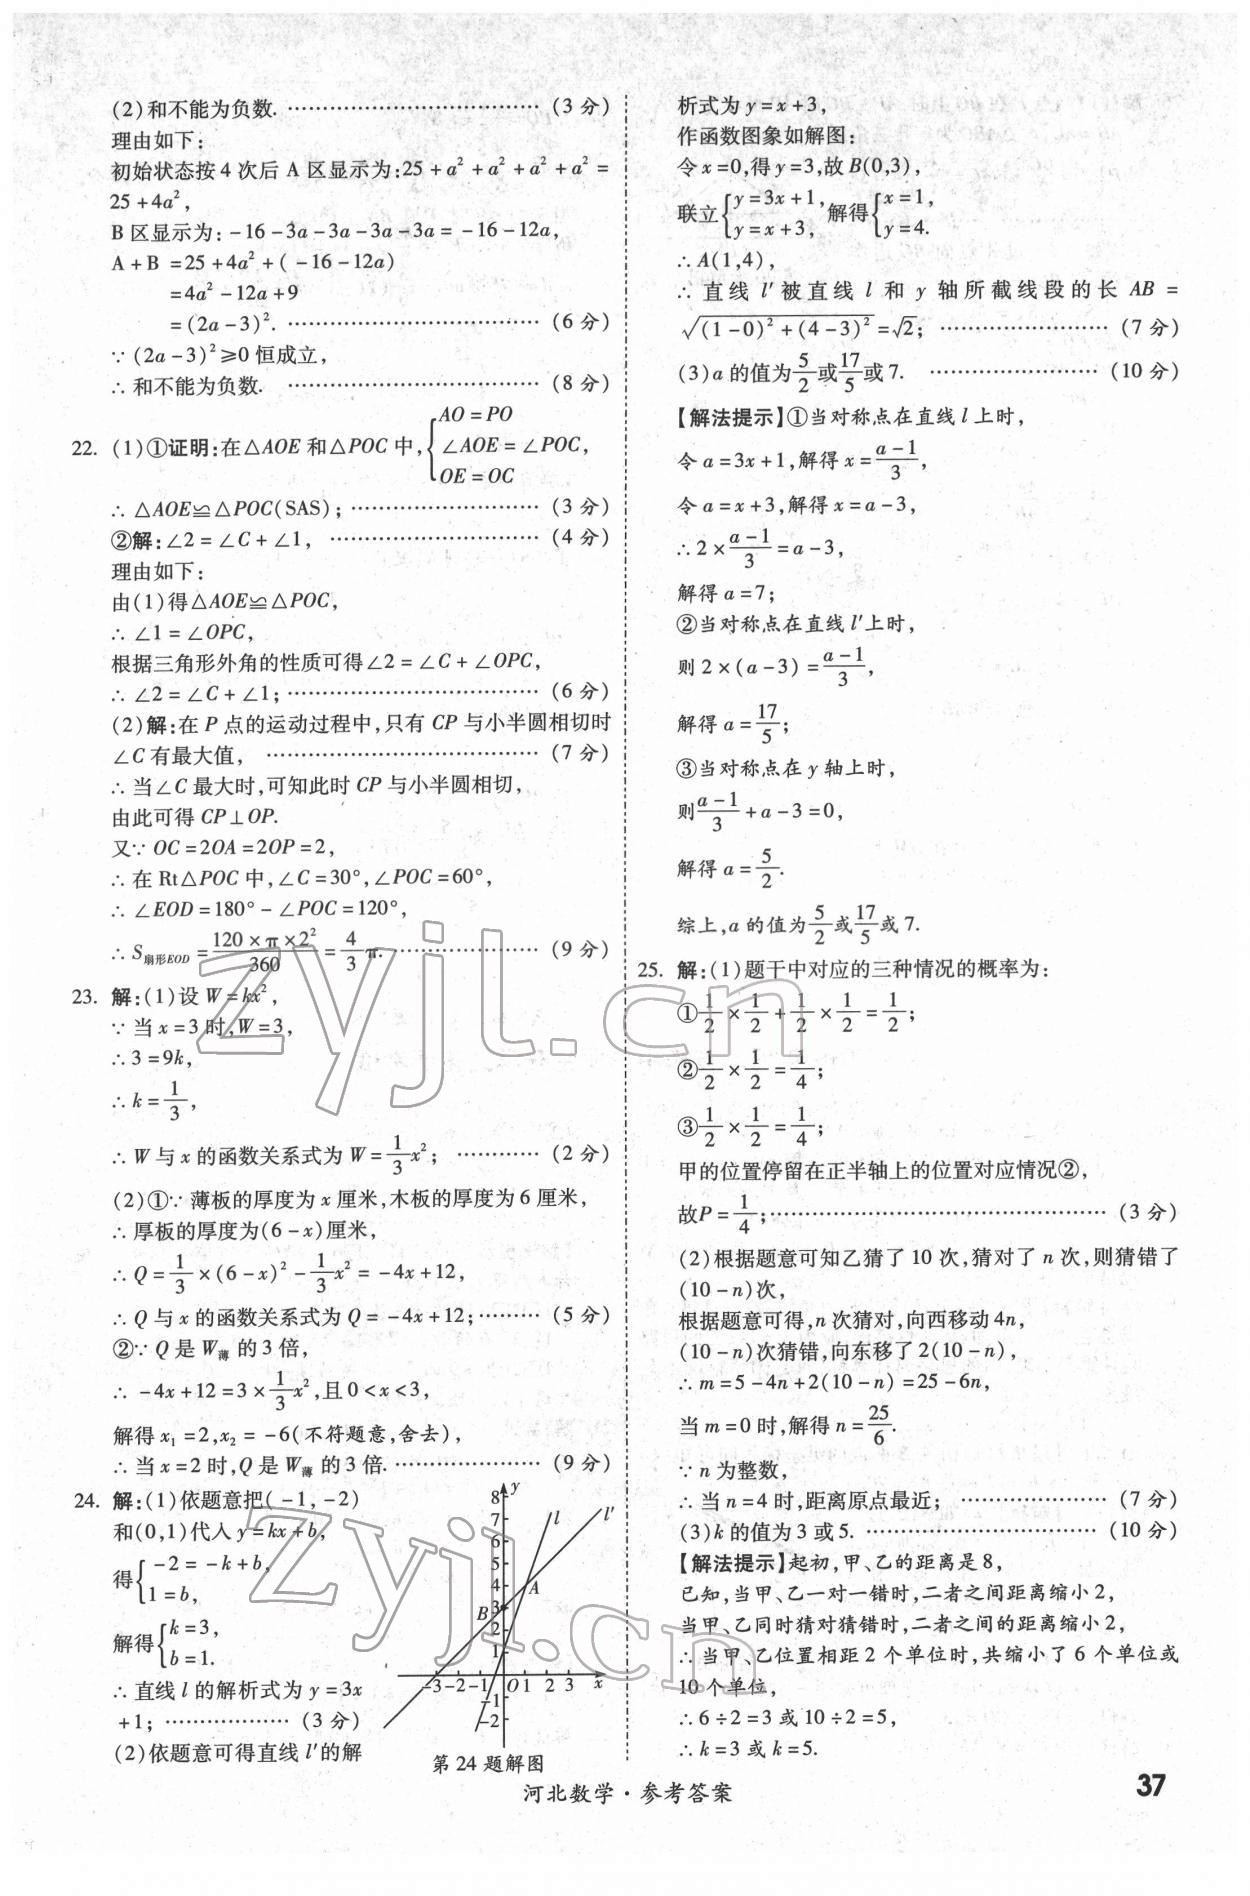 (2)和不能为负数. ………………………… (3 分)
理由如下:
初始状态按 4 次后 A 区显示为:25 + a² + a² + a² + a² =
25 + 4a²,
B 区显示为: -16 - 3a - 3a - 3a - 3a = -16 - 12a,
A + B = 25 + 4a² + ( -16 - 12a)
= 4a² - 12a + 9
= (2a - 3)². ………………………… (6 分)
∵ (2a - 3)² ≥ 0 恒成立,
∴ 和不能为负数. ………………………… (8 分)
22. (1)①证明:在△AOE 和△POC 中, { AO = PO
∠AOE = ∠POC,
OE = OC
∴ △AOE≌△POC(SAS); ………………… (3 分)
②解:∠2 = ∠C + ∠1, …………………… (4 分)
理由如下:
由(1)得△AOE≌△POC,
∴ ∠1 = ∠OPC,
根据三角形外角的性质可得∠2 = ∠C + ∠OPC,
∴ ∠2 = ∠C + ∠1; ………………………… (6 分)
(2)解:在 P 点的运动过程中,只有 CP 与小半圆相切时
∠C 有最大值, ………………………… (7 分)
∴ 当∠C 最大时,可知此时 CP 与小半圆相切,
由此可得 CP⊥OP.
又∵ OC = 2OA = 2OP = 2,
∴ 在 Rt△POC 中,∠C = 30°,∠POC = 60°,
∴ ∠EOD = 180° - ∠POC = 120°,
∴ S扇形EOD = (120 × π × 2²)/360 = 4/3 π. ……………… (9 分)
23. 解:(1)设 W = kx²,
∵ 当 x = 3 时, W = 3,
∴ 3 = 9k,
∴ k = 1/3,
∴ W 与 x 的函数关系式为 W = 1/3 x²; ………… (2 分)
(2)①∵ 薄板的厚度为 x 厘米,木板的厚度为 6 厘米,
∴ 厚板的厚度为(6 - x)厘米,
∴ Q = 1/3 × (6 - x)² - 1/3 x² = -4x + 12,
∴ Q 与 x 的函数关系式为 Q = -4x + 12; ……… (5 分)
②∵ Q 是 W薄 的 3 倍,
∴ -4x + 12 = 3 × 1/3 x²,且 0 < x < 3,
解得 x₁ = 2, x₂ = -6(不符题意,舍去),
∴ 当 x = 2 时,Q 是 W薄 的 3 倍. ……………… (9 分)
24. 解:(1)依题意把( -1, -2)
和(0,1)代入 y = kx + b,
得{ -2 = -k + b,
1 = b,
解得{ k = 3,
b = 1.
∴ 直线 l 的解析式为 y = 3x
+ 1; ……………… (3 分)
(2)依题意可得直线 l′的解
8 y
7 l l′
6
5
4 A
3 B
2
1
-3 -2 -1 O 1 2 3 x
-1
-2
第 24 题解图
析式为 y = x + 3,
作函数图象如解图:
令 x = 0,得 y = 3,故 B(0,3),
联立{ y = 3x + 1,
y = x + 3, 解得{ x = 1,
y = 4.
∴ A(1,4),
∴ 直线 l′ 被直线 l 和 y 轴所截线段的长 AB =
√((1 - 0)² + (4 - 3)²) = √2; …………………… (7 分)
(3)a 的值为 5/2 或 17/5 或 7. …………………… (10 分)
【解法提示】①当对称点在直线 l 上时,
令 a = 3x + 1,解得 x = (a - 1)/3,
令 a = x + 3,解得 x = a - 3,
∴ 2 × (a - 1)/3 = a - 3,
解得 a = 7;
②当对称点在直线 l′上时,
则 2 × (a - 3) = (a - 1)/3,
解得 a = 17/5;
③当对称点在 y 轴上时,
则 (a - 1)/3 + a - 3 = 0,
解得 a = 5/2.
综上,a 的值为 5/2 或 17/5 或 7.
25. 解:(1)题干中对应的三种情况的概率为:
① 1/2 × 1/2 + 1/2 × 1/2 = 1/2;
② 1/2 × 1/2 = 1/4;
③ 1/2 × 1/2 = 1/4;
甲的位置停留在正半轴上的位置对应情况②,
故P = 1/4; ………………………………… (3 分)
(2)根据题意可知乙猜了 10 次,猜对了 n 次,则猜错了
(10 - n)次,
根据题意可得,n 次猜对,向西移动 4n,
(10 - n)次猜错,向东移了 2(10 - n),
∴ m = 5 - 4n + 2(10 - n) = 25 - 6n,
当 m = 0 时,解得 n = 25/6.
∵ n 为整数,
∴ 当 n = 4 时,距离原点最近; ………………… (7 分)
(3)k 的值为 3 或 5. ………………………… (10 分)
【解法提示】起初,甲、乙的距离是 8,
已知,当甲、乙一对一错时,二者之间距离缩小 2,
当甲、乙同时猜对猜错时,二者之间的距离缩小 2,
∴ 当甲、乙位置相距 2 个单位时,共缩小了 6 个单位或
10 个单位,
∴ 6 ÷ 2 = 3 或 10 ÷ 2 = 5,
∴ k = 3 或 k = 5.
河北数学 · 参考答案
37
zyjl.cn
zyjl.cn